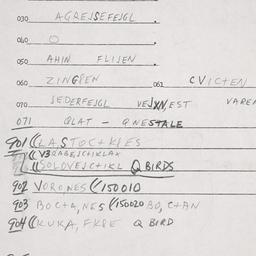 030 AGREJSEFEJGL
040 O
050 AHIN FLIJEN
060 ZINGPEN 061 CVICTEN
070 JEDERFEJGL VEJXNEST VAREN
071 QLAT - QNESTALE
901 ((LA,STOCT+KPES
((V3RABEJCTIKLAX
((SOLOVEJCTIKL Q BIRDS
902 VORO,NES ((150010
903 BOCTA,NES (150020 BO,CTAN
904 ((KUKA,FKPE Q BIRD